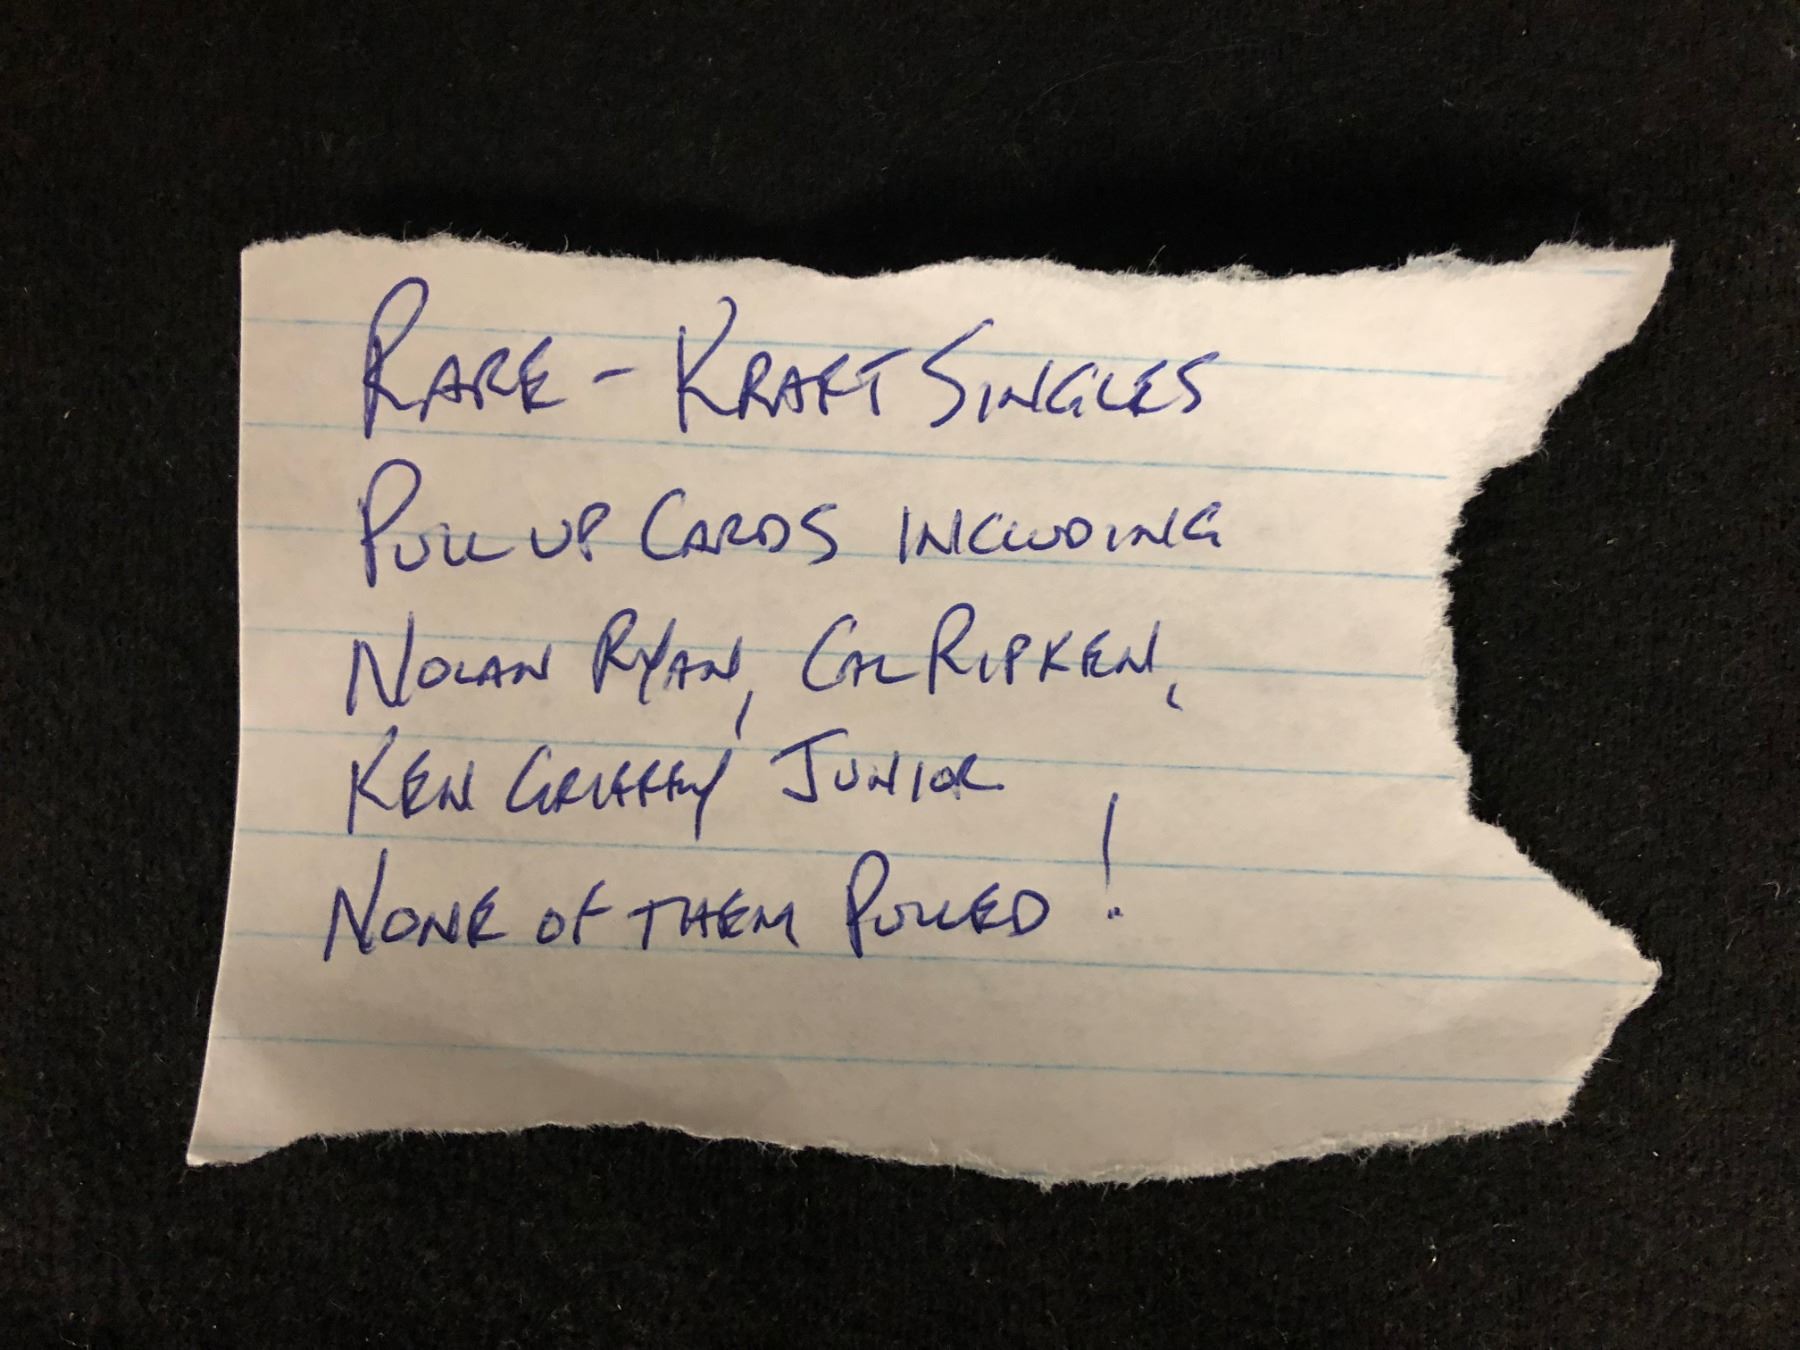 RARE - KRAFT SINGLES
PULL UP CARDS INCLUDING
NOLAN RYAN, CAL RIPKEN,
KEN GRIFFEY JUNIOR
NONE OF THEM PULLED!